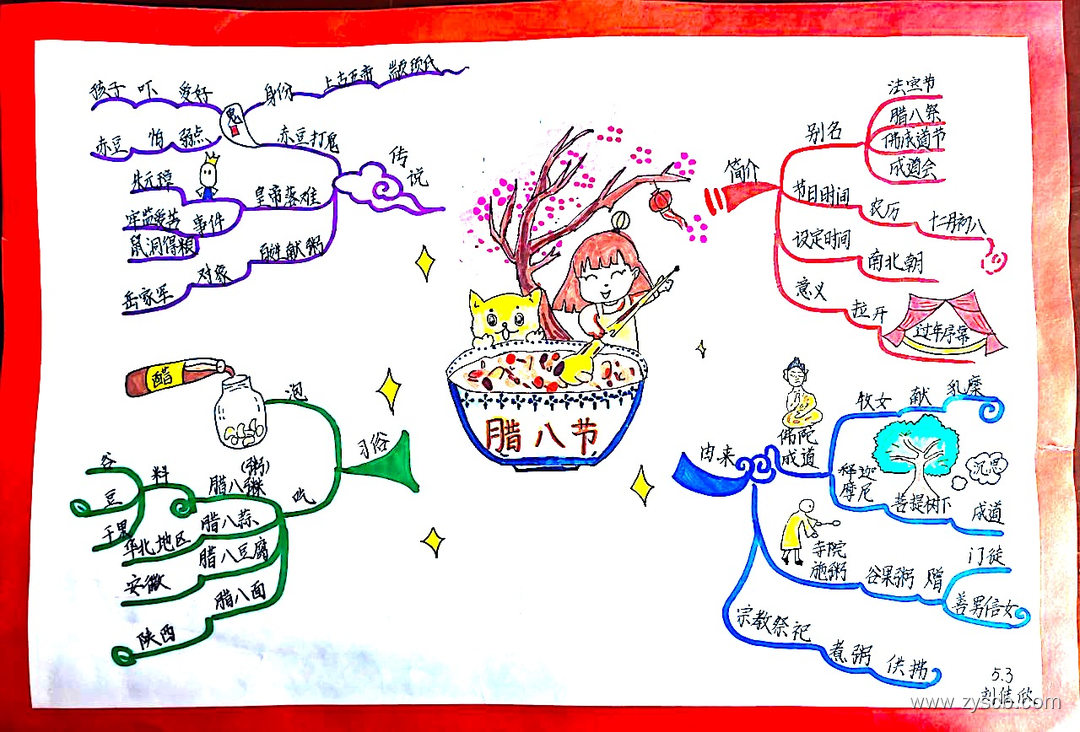 腊八节
传说
赤豆打鬼
鬼
身份
上古五帝
颛顼氏
爱好
吓
孩子
弱点
怕
赤豆
皇帝落难
朱元璋
事件
牢监受苦
鼠洞得粮
百姓献粥
对象
岳家军
简介
别名
法宝节
腊八祭
佛成道节
成道会
节日时间
农历
十二月初八
设定时间
南北朝
意义
拉开
过年序幕
习俗
泡
醋
吃
(粥)
腊八
料
谷
豆
干果
腊八蒜
华北地区
腊八豆腐
安徽
腊八面
陕西
由来
佛陀
成道
牧女
献
乳糜
释迦
摩尼
菩提树下
沉思
成道
寺院
施粥
谷果粥
赠
门徒
善男信女
宗教祭祀
煮粥
供拂
5.3
www.zyscb.com